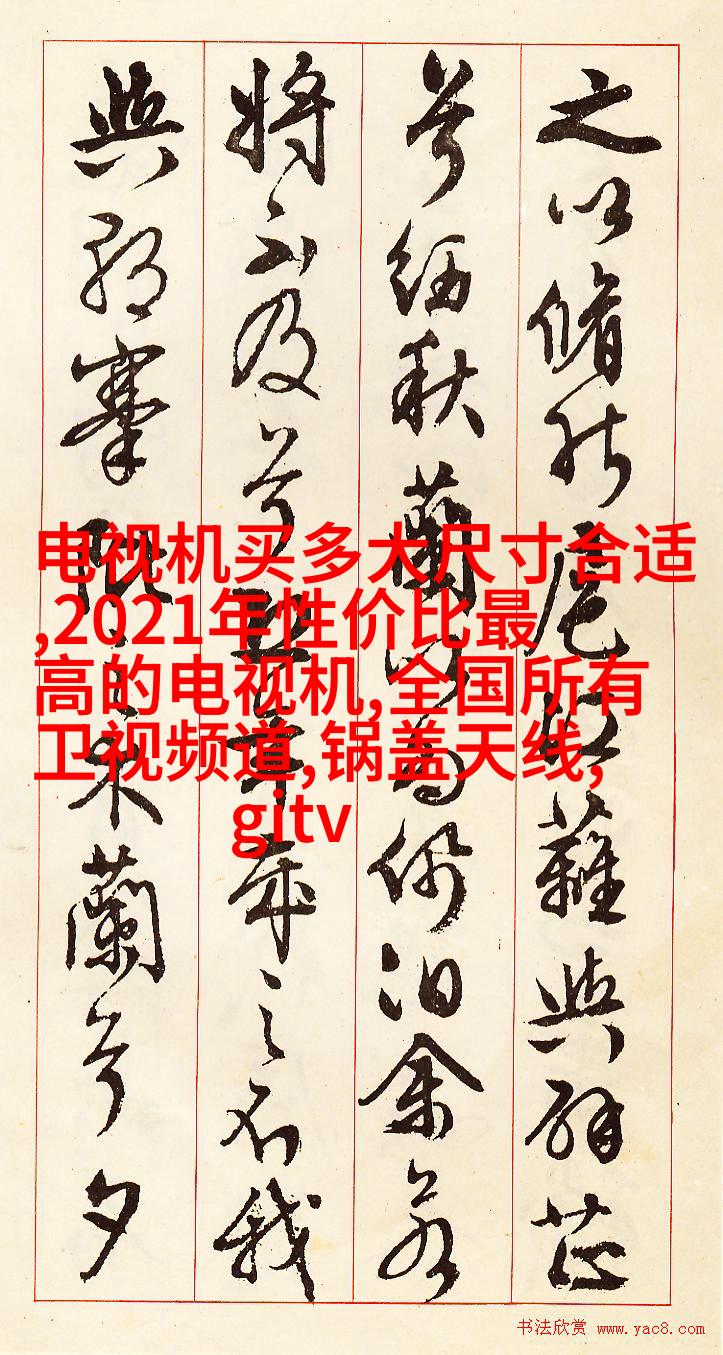 之以脩能扈江蘺與辟芷
兮紉秋蘭以為佩汩余若
將不及兮恐年歲之不我
與朝搴阰之木蘭兮夕
电视机买多大尺寸合适
,2021年性价比最
高的电视机,全国所有
卫视频道,锅盖天线,
gitv
书法欣赏 www.yac8.com